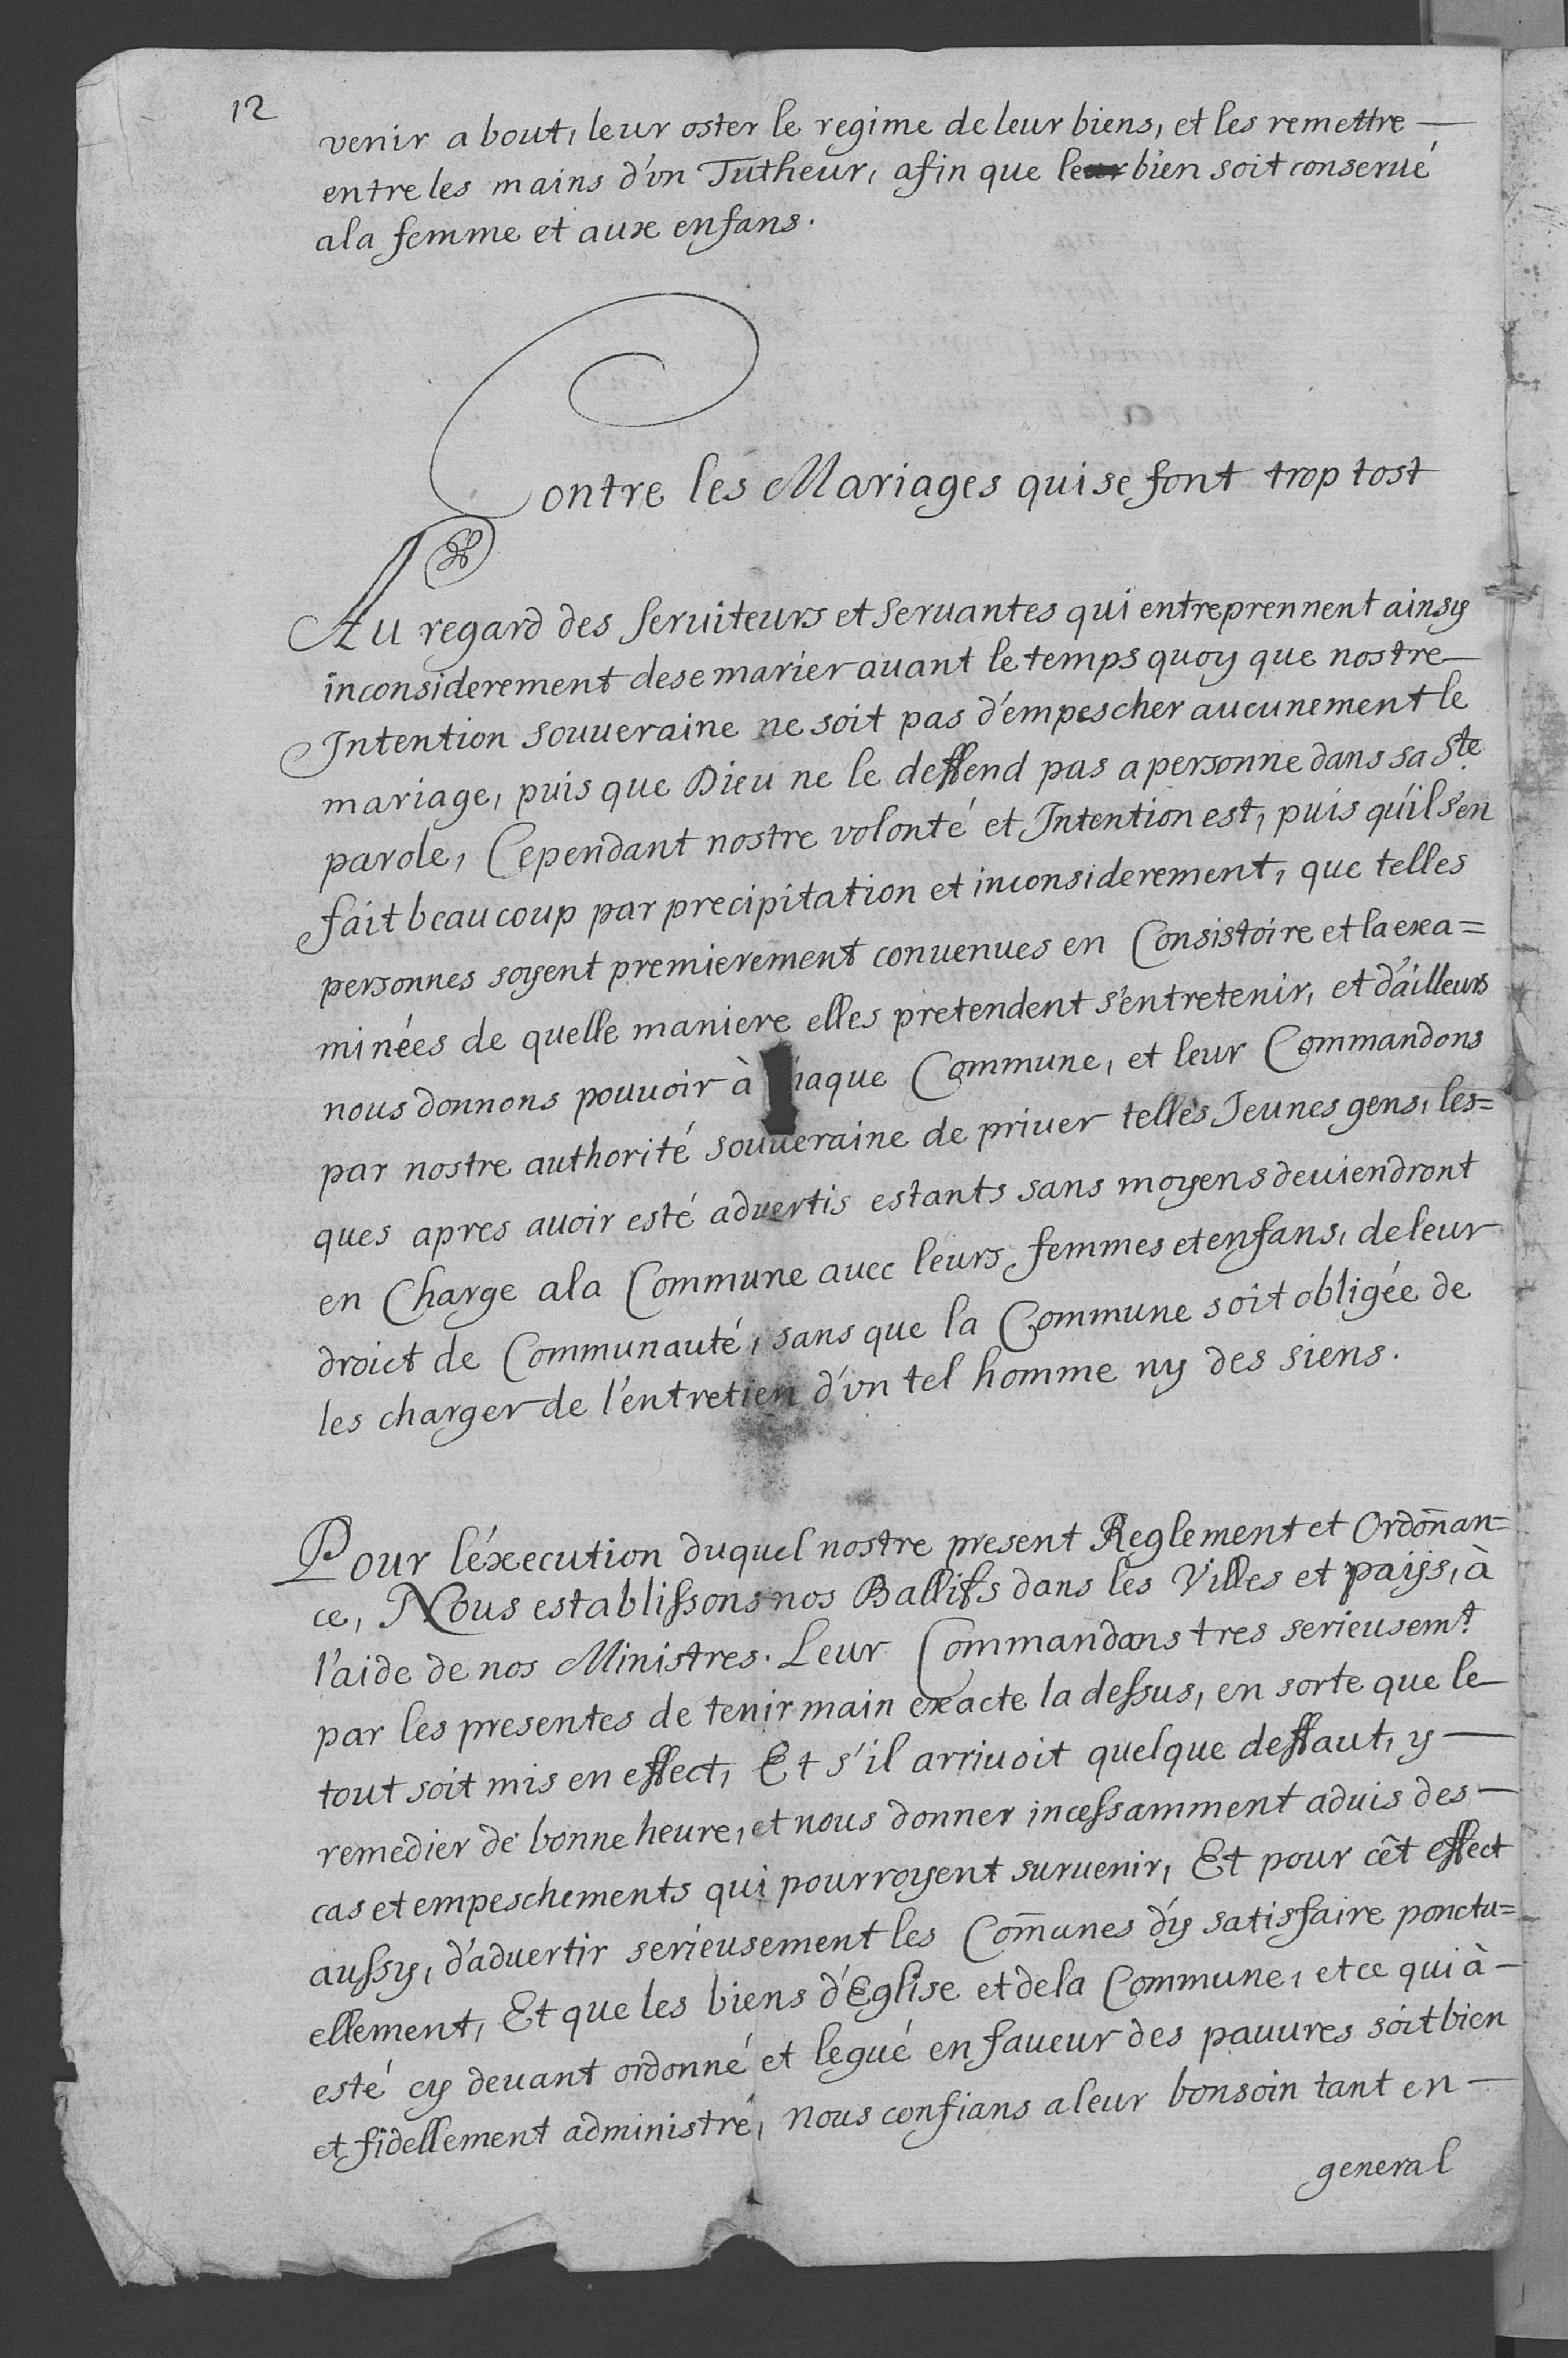 12
venir a bout, leur oster le regime de leur biens, et les remettre —
entre les mains d'vn Tutheur, afin que le bien soit conserué
a la femme et aux enfans.
Contre les Mariages qui se font trop tost
Au regard des seruiteurs et seruantes qui entreprennent ainsy
inconsiderement de se marier auant le temps quoy que nostre
Intention souueraine ne soit pas d'empescher aucunement le
mariage, puis que Dieu ne le deffend pas a personne dans sa Ste
parole, Cependant nostre volonté et Intention est, puis qu'il s'en
fait beaucoup par precipitation et inconsiderement, que telles
personnes soyent premierement conuenues en Consistoire et la exa=
minées de quelle maniere elles pretendent s'entretenir, et d'ailleurs
nous donnons pouuoir à haque Commune, et leur Commandons
par nostre authorité souueraine de priuer telles Jeunes gens, les=
ques apres auoir esté aduertis estants sans moyens deuiendront
en Charge a la Commune auec leurs femmes et enfans, de leur
droict de Communauté, sans que la Commune soit obligée de
les charger de l'entretien d'vn tel homme ny des siens.
Pour l'éxecution duquel nostre present Reglement et Ordon̄an=
ce, Nous establissons nos Ballifs dans les Villes et païjs, à
l'aide de nos Ministres. Leur Commandons tres serieusemt
par les presentes de tenir main exacte la dessus, en sorte que le
tout soit mis en effect, Et s'il arriuoit quelque deffaut, y —
remedier de bonne heure, et nous donner incessamment aduis des —
cas et empeschements qui pourroyent suruenir, Et pour cêt effect
aussy, d'aduertir serieusement les Com̄unes d'y satisfaire ponctu=
ellement, Et que les biens d'Eglise et de la Commune, et ce qui à —
esté cy deuant ordonné et legué en faueur des pauures soit bien
et fidellement administré, nous confians a leur bon soin tant en —
general